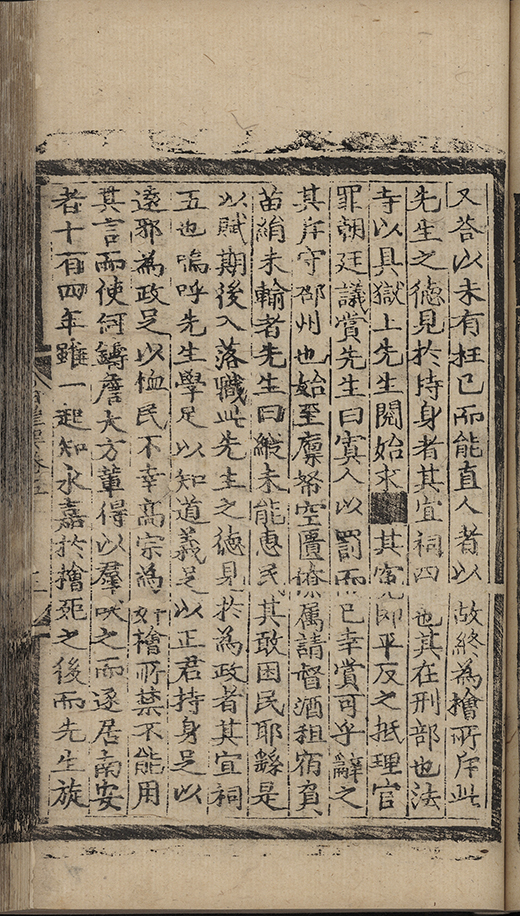 又荅以未有枉已而能直人者以故終為檜所斥此
先生之徳見扵持身者其宜祠四也其在刑部也法
寺以具獄上先生閱始求其寃即平反之抵理官
罪朝廷議賞先生曰寘人以罰而已幸賞可乎辭之
其斥守邵州也始至廩帑空匱僚属請督酒租宿負
苗絹未輸者先生曰縦未能恵民其敢困民耶繇是
以賦期後入落職此先生之徳見扵為政者其宜祠
五也嗚呼先生學足以知道義足以正君持身足以
遠邪為政足以恤民不幸髙宗為奸檜所禁不能用
其言而使何鑄詹大方軰得以羣吠之而遂居南安
者十有四年雖一起知永嘉扵檜死之後而先生旋